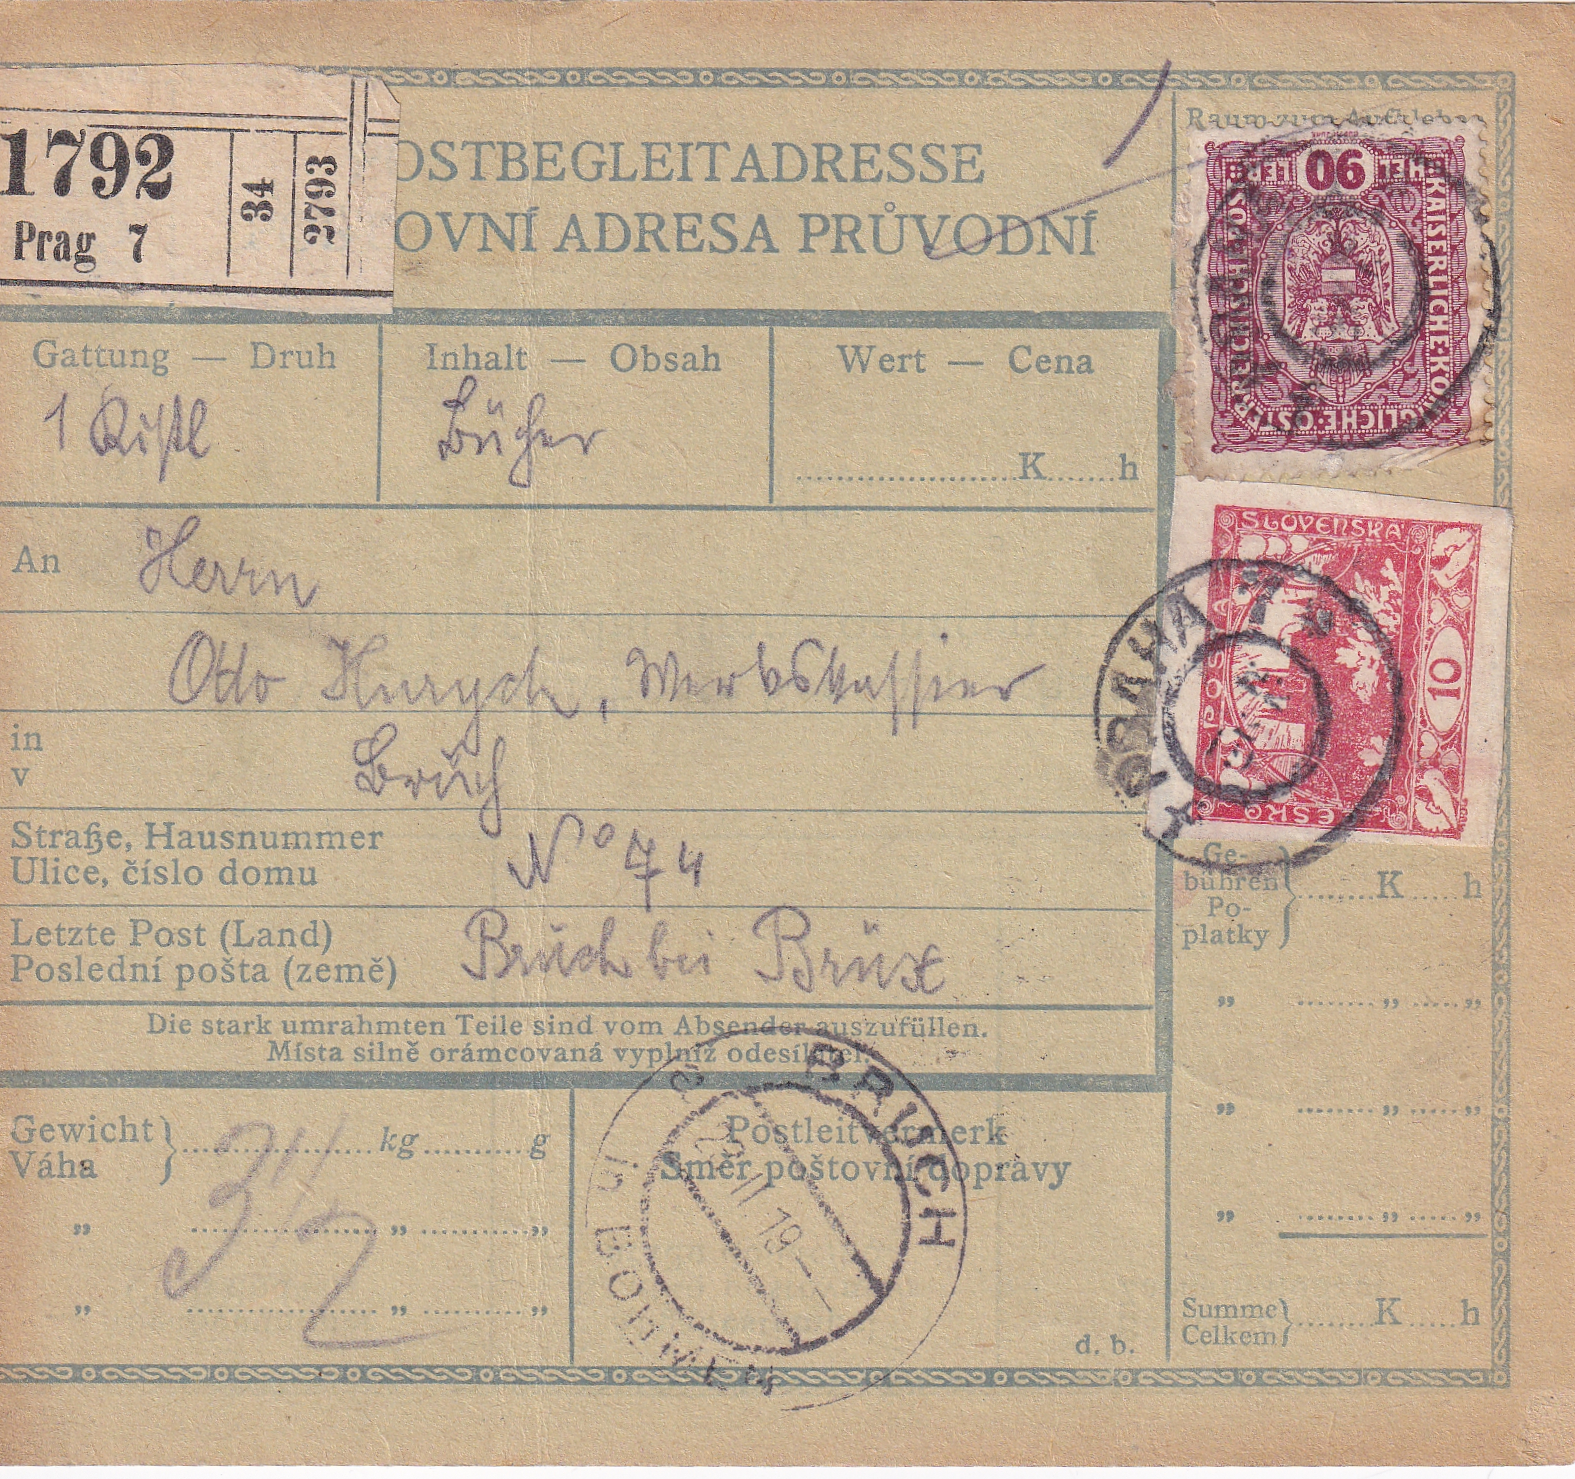 1792
Prag 7
34
2793
OSTBEGLEITADRESSE
OVNÍ ADRESA PRŮVODNÍ
Raum zum Aufkleben
90
HEL LER
KAISERLICHE KÖ GLICHE ÖSTERREICHISCHE POST
Gattung — Druh
Inhalt — Obsah
Wert — Cena
1 Kistl
Bücher
K h
SLOVENSKÁ
POŠTA
ČESKO
10
PRAHA 7
An Herrn
Otto Hurych, Werkskassier
in
v
Bruch
Straße, Hausnummer
Ulice, číslo domu
No 74
Letzte Post (Land)
Poslední pošta (země)
Bruch bei Brüx
Die stark umrahmten Teile sind vom Absender auszufüllen.
Místa silně orámcovaná vyplniž odesílatel.
Ge-
bühren
Po-
platky
K h
" " "
" " "
" " "
Gewicht
Váha
kg g
3 1/2
" " "
" " "
Postleitvermerk
Směr poštovní dopravy
BRUCH
in BÖHMEN
22 II. 19
d. b.
Summe
Celkem
K h